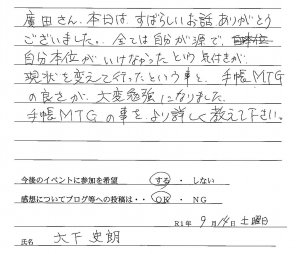 廣田さん、本日は、すばらしいお話ありがとう
ございました。全ては自分が源で、
自分本位がいけなかったという気付きが、
現状を変えて行ったという事と、手帳MTG
の良さが、大変勉強になりました。
手帳MTGの事をより詳しく教えて下さい。
今後のイベントに参加を希望 する・しない
感想についてブログ等への投稿は・・OK・NG
R1年 9月14日 土曜日
氏名 大下史朗